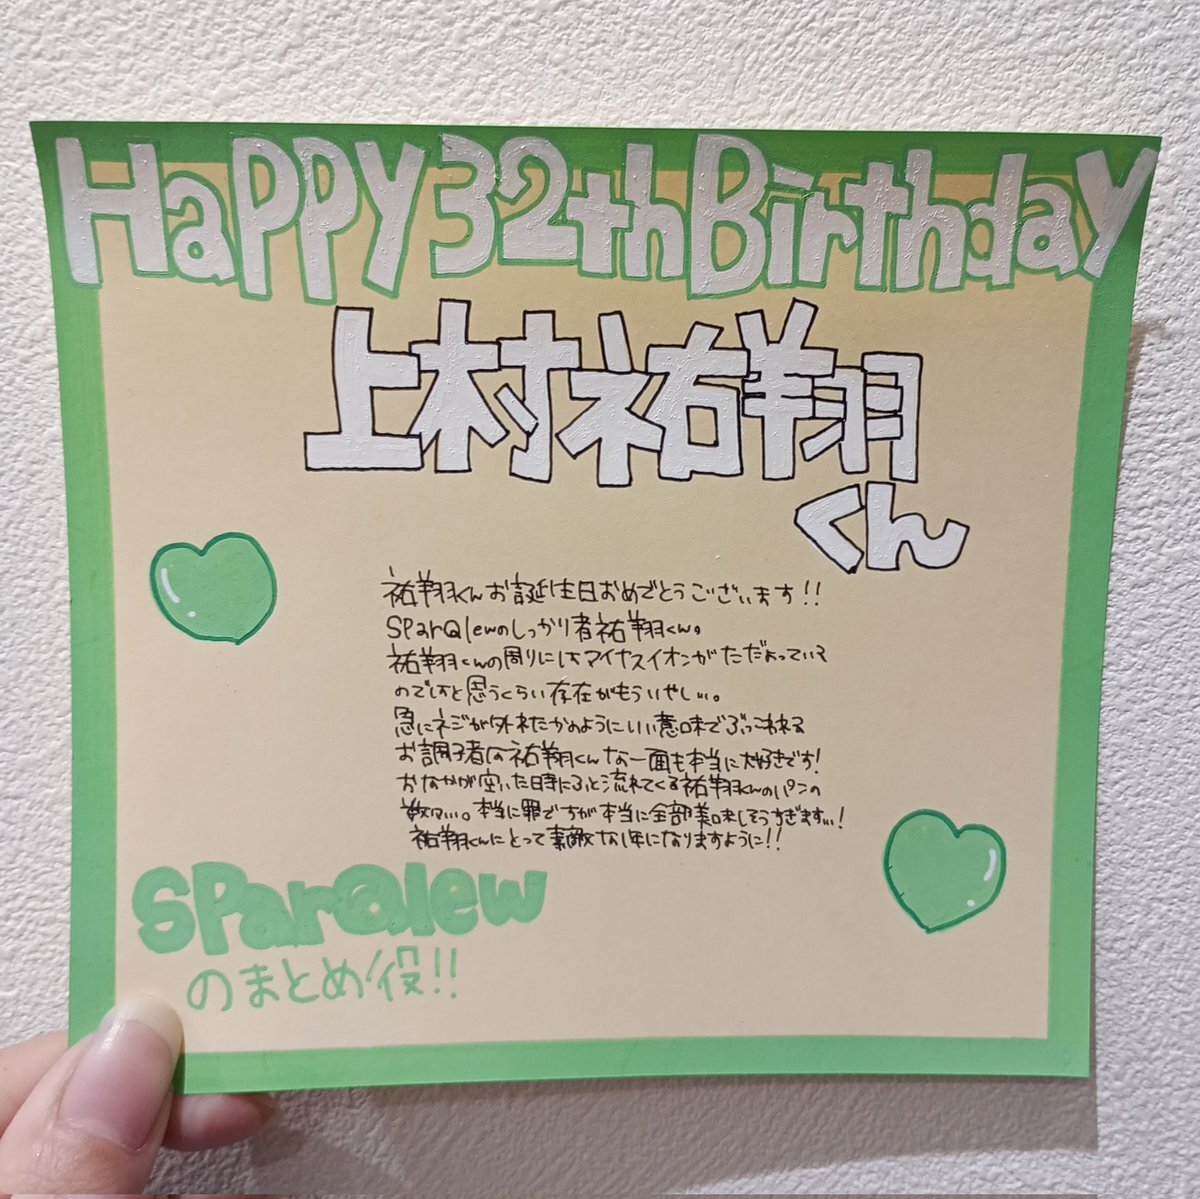 Happy 32th Birthday
上村祐翔
くん
祐翔くんお誕生日おめでとうございます!!
SParQlewのしっかり者祐翔くん。
祐翔くんの周りにはマイナスイオンがただよっている
のではと思うくらい存在がもういやし…。
急にネジが外れたかのようにいい意味でぶっこわれる
お調子者な祐翔くんな一面も本当に大好きです!
おなかが空いた時にふと流れてくる祐翔くんのパンの
数々…。本当に罪ですが本当に全部美味しそうすぎます…!
祐翔くんにとって素敵な1年になりますように!!
SParQlew
のまとめ役!!